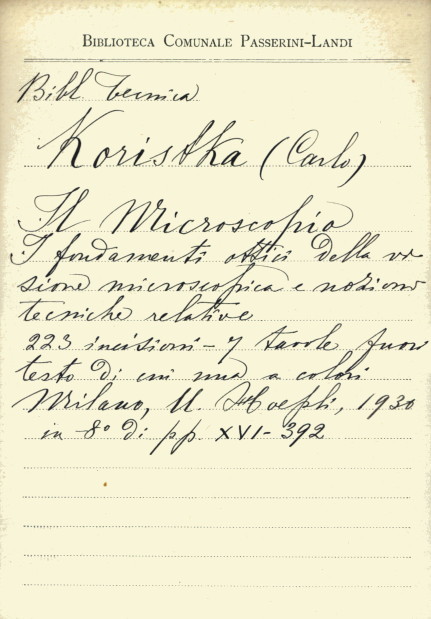 BIBLIOTECA COMUNALE PASSERINI-LANDI
Bibl. tecnica
Koristka (Carlo)
Il Microscopio
I fondamenti ottici della vi-
sione microscopica e nozioni
tecniche relative
223 incisioni - 7 tavole fuori
testo di cui una a colori
Milano, U. Hoepli, 1930
in -8° di pp. XVI-392